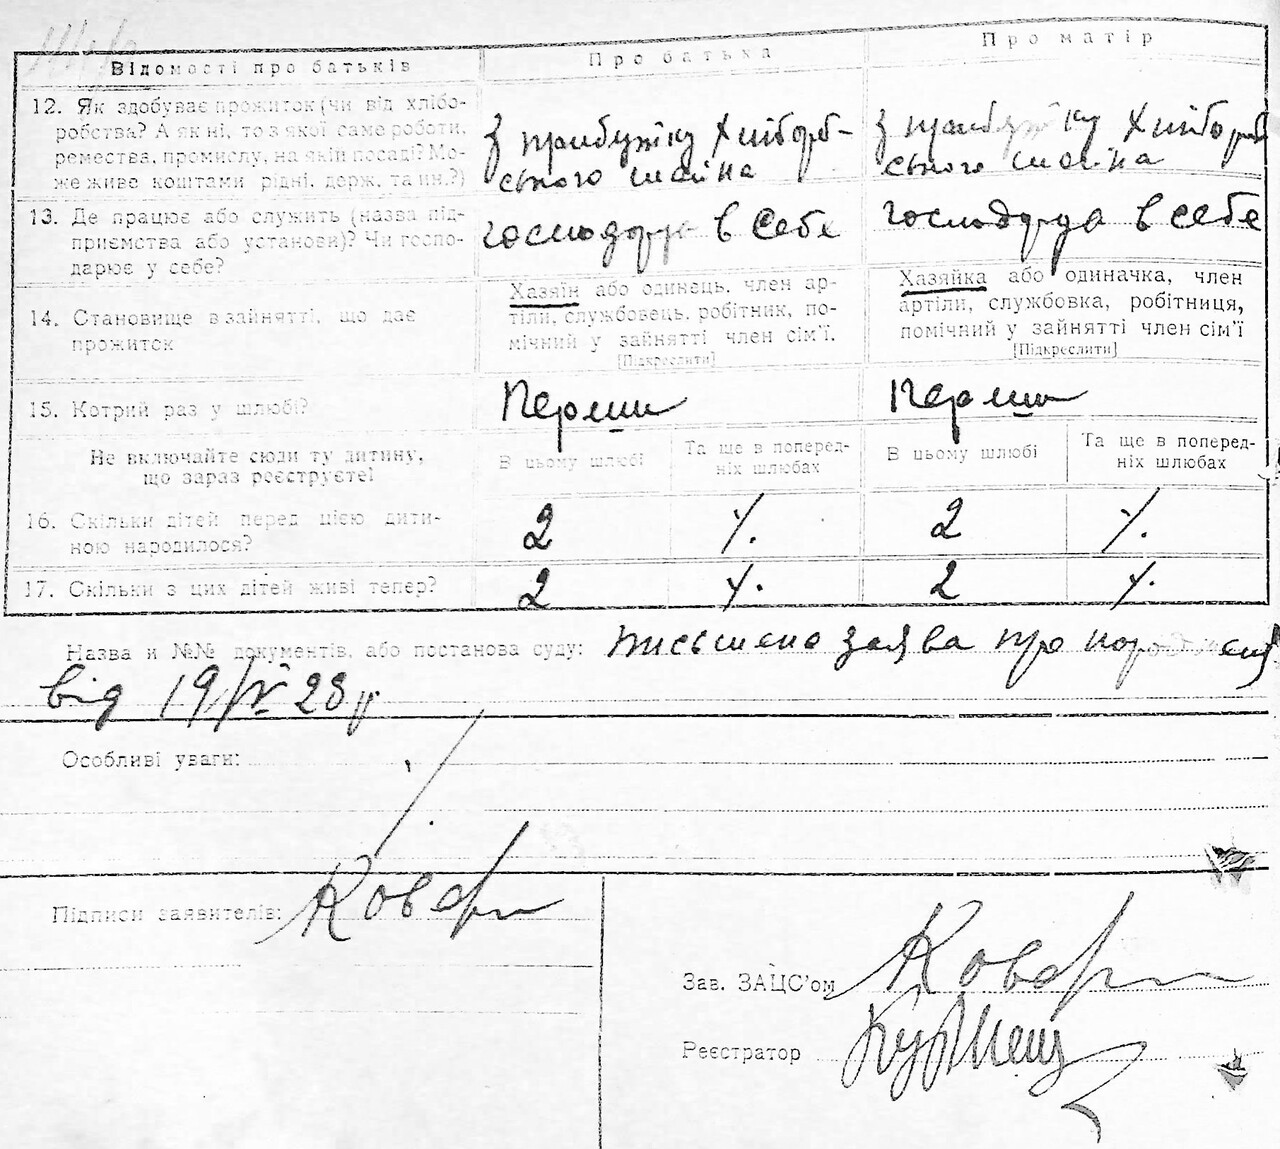 Відомості про батьків
Про батька
Про матір
12. Як здобуває прожиток (чи від хлібо-
робства? А як ні, то з якої саме роботи,
ремества, промислу, на якій посаді? Мо-
же живе коштами рідні, держ. та ин.?)
з прибутку хлібороб-
ського майна
з прибутку хлібороб
ського майна
13. Де працює або служить (назва під-
приємства або установи)? Чи госпо-
дарює у себе?
господарує в себе
господарує в себе
14. Становище в зайнятті, що дає
прожиток
Хазяїн або одинець, член ар-
тіли, службовець, робітник, по-
мічний у зайнятті член сім'ї.
[Підкреслити]
Хазяйка або одиначка, член
артіли, службовка, робітниця,
помічний у зайнятті член сім'ї
[Підкреслити]
15. Котрий раз у шлюбі?
Перши
Перши
Не включайте сюди ту дитину,
що зараз реєструєте!
В цьому шлюбі
Та ще в поперед-
ніх шлюбах
В цьому шлюбі
Та ще в поперед-
ніх шлюбах
16. Скільки дітей перед цією дити-
ною народилося?
2
2
17. Скільки з цих дітей живі тепер?
2
2
Назва и №№ документів, або постанова суду: письмена заява про народження
від 19/IV 28 р
Особливі уваги:
Підписи заявителів:
Зав. ЗАЦС'ом
Реєстратор